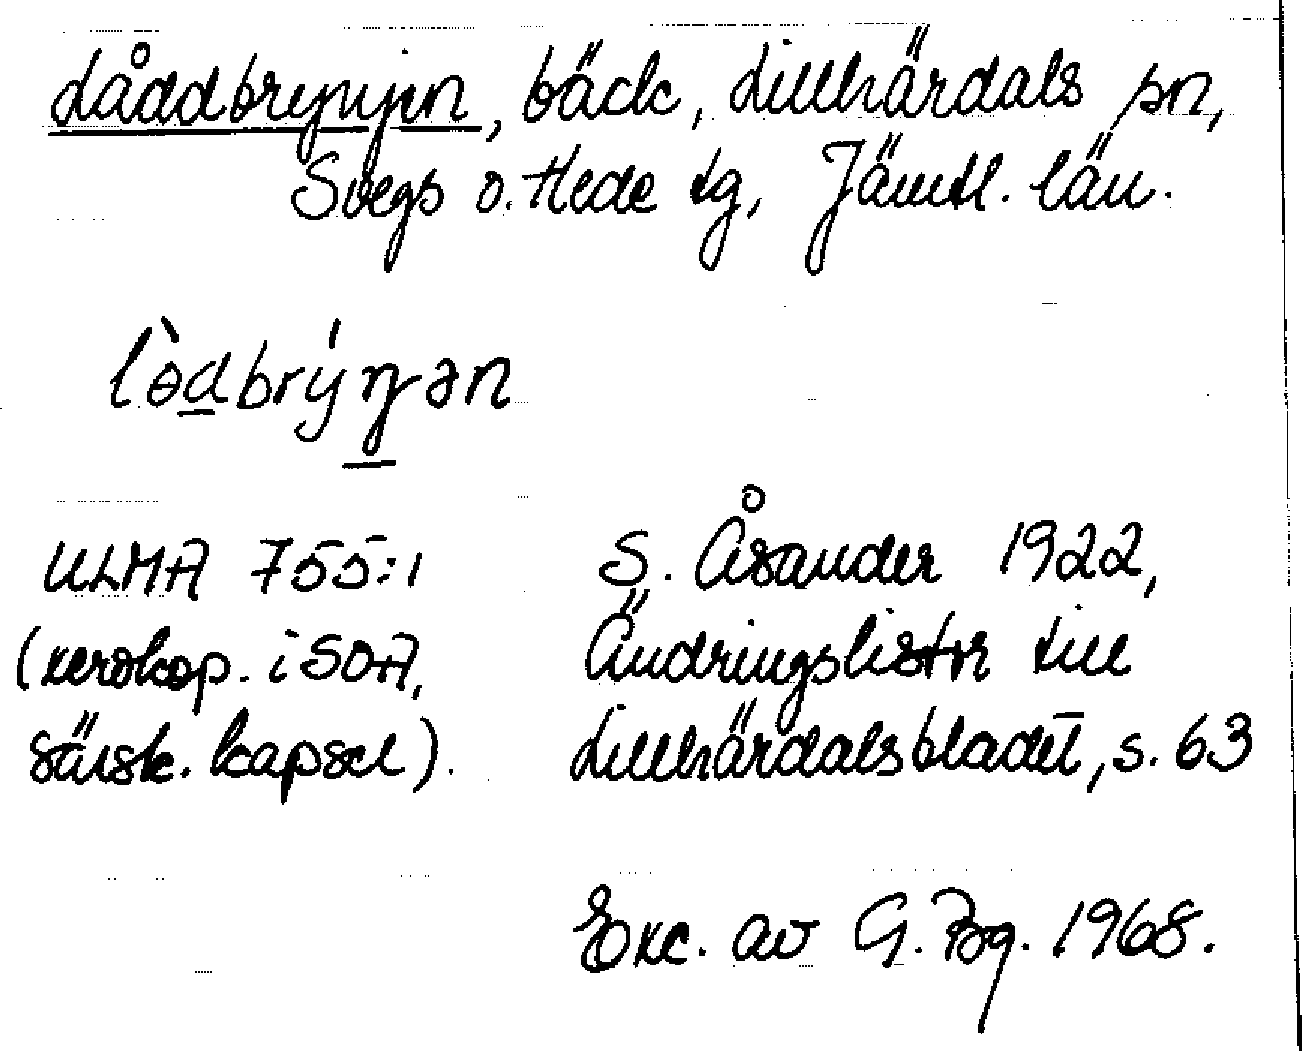 Låddbrynjin, bäck, Lillhärdals sn,
Svegs o. Hede tg, Jämtl. län.
lɵ̀dbrýŋən
ULMA 755:1
(xerokop. i SOA,
särsk. kapsel).
S. Åsander 1922,
Ändringslistor till
Lillhärdalsbladet, s. 63
Exc. av G. Bg. 1968.